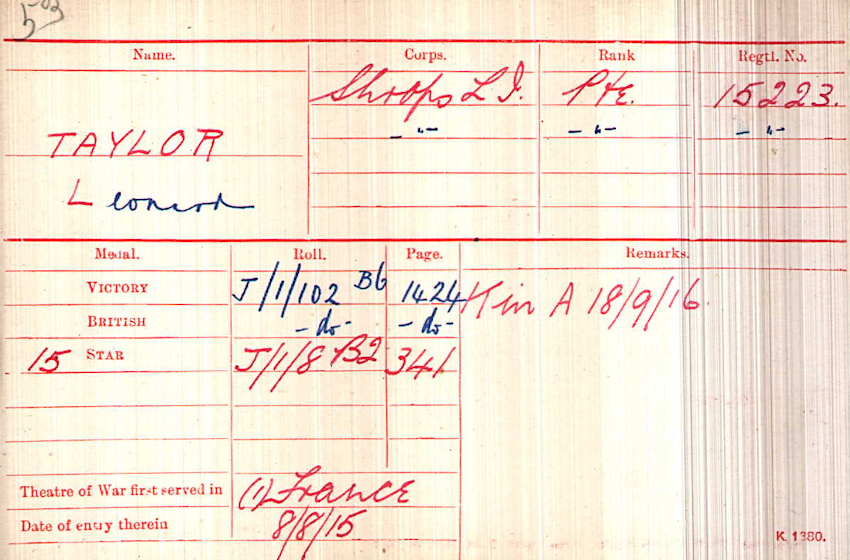 503
Name. Corps. Rank Regtl. No.
Shrops L I. Pte. 15223.
TAYLOR -"- -"- -"-
Leonard
Medal. Roll. Page. Remarks.
VICTORY J/1/102 B6 1424 K in A 18/9/16.
BRITISH -do- -do-
15 STAR J/1/8 B2 341
Theatre of War first served in (1) France
Date of entry therein 8/8/15
K. 1380.